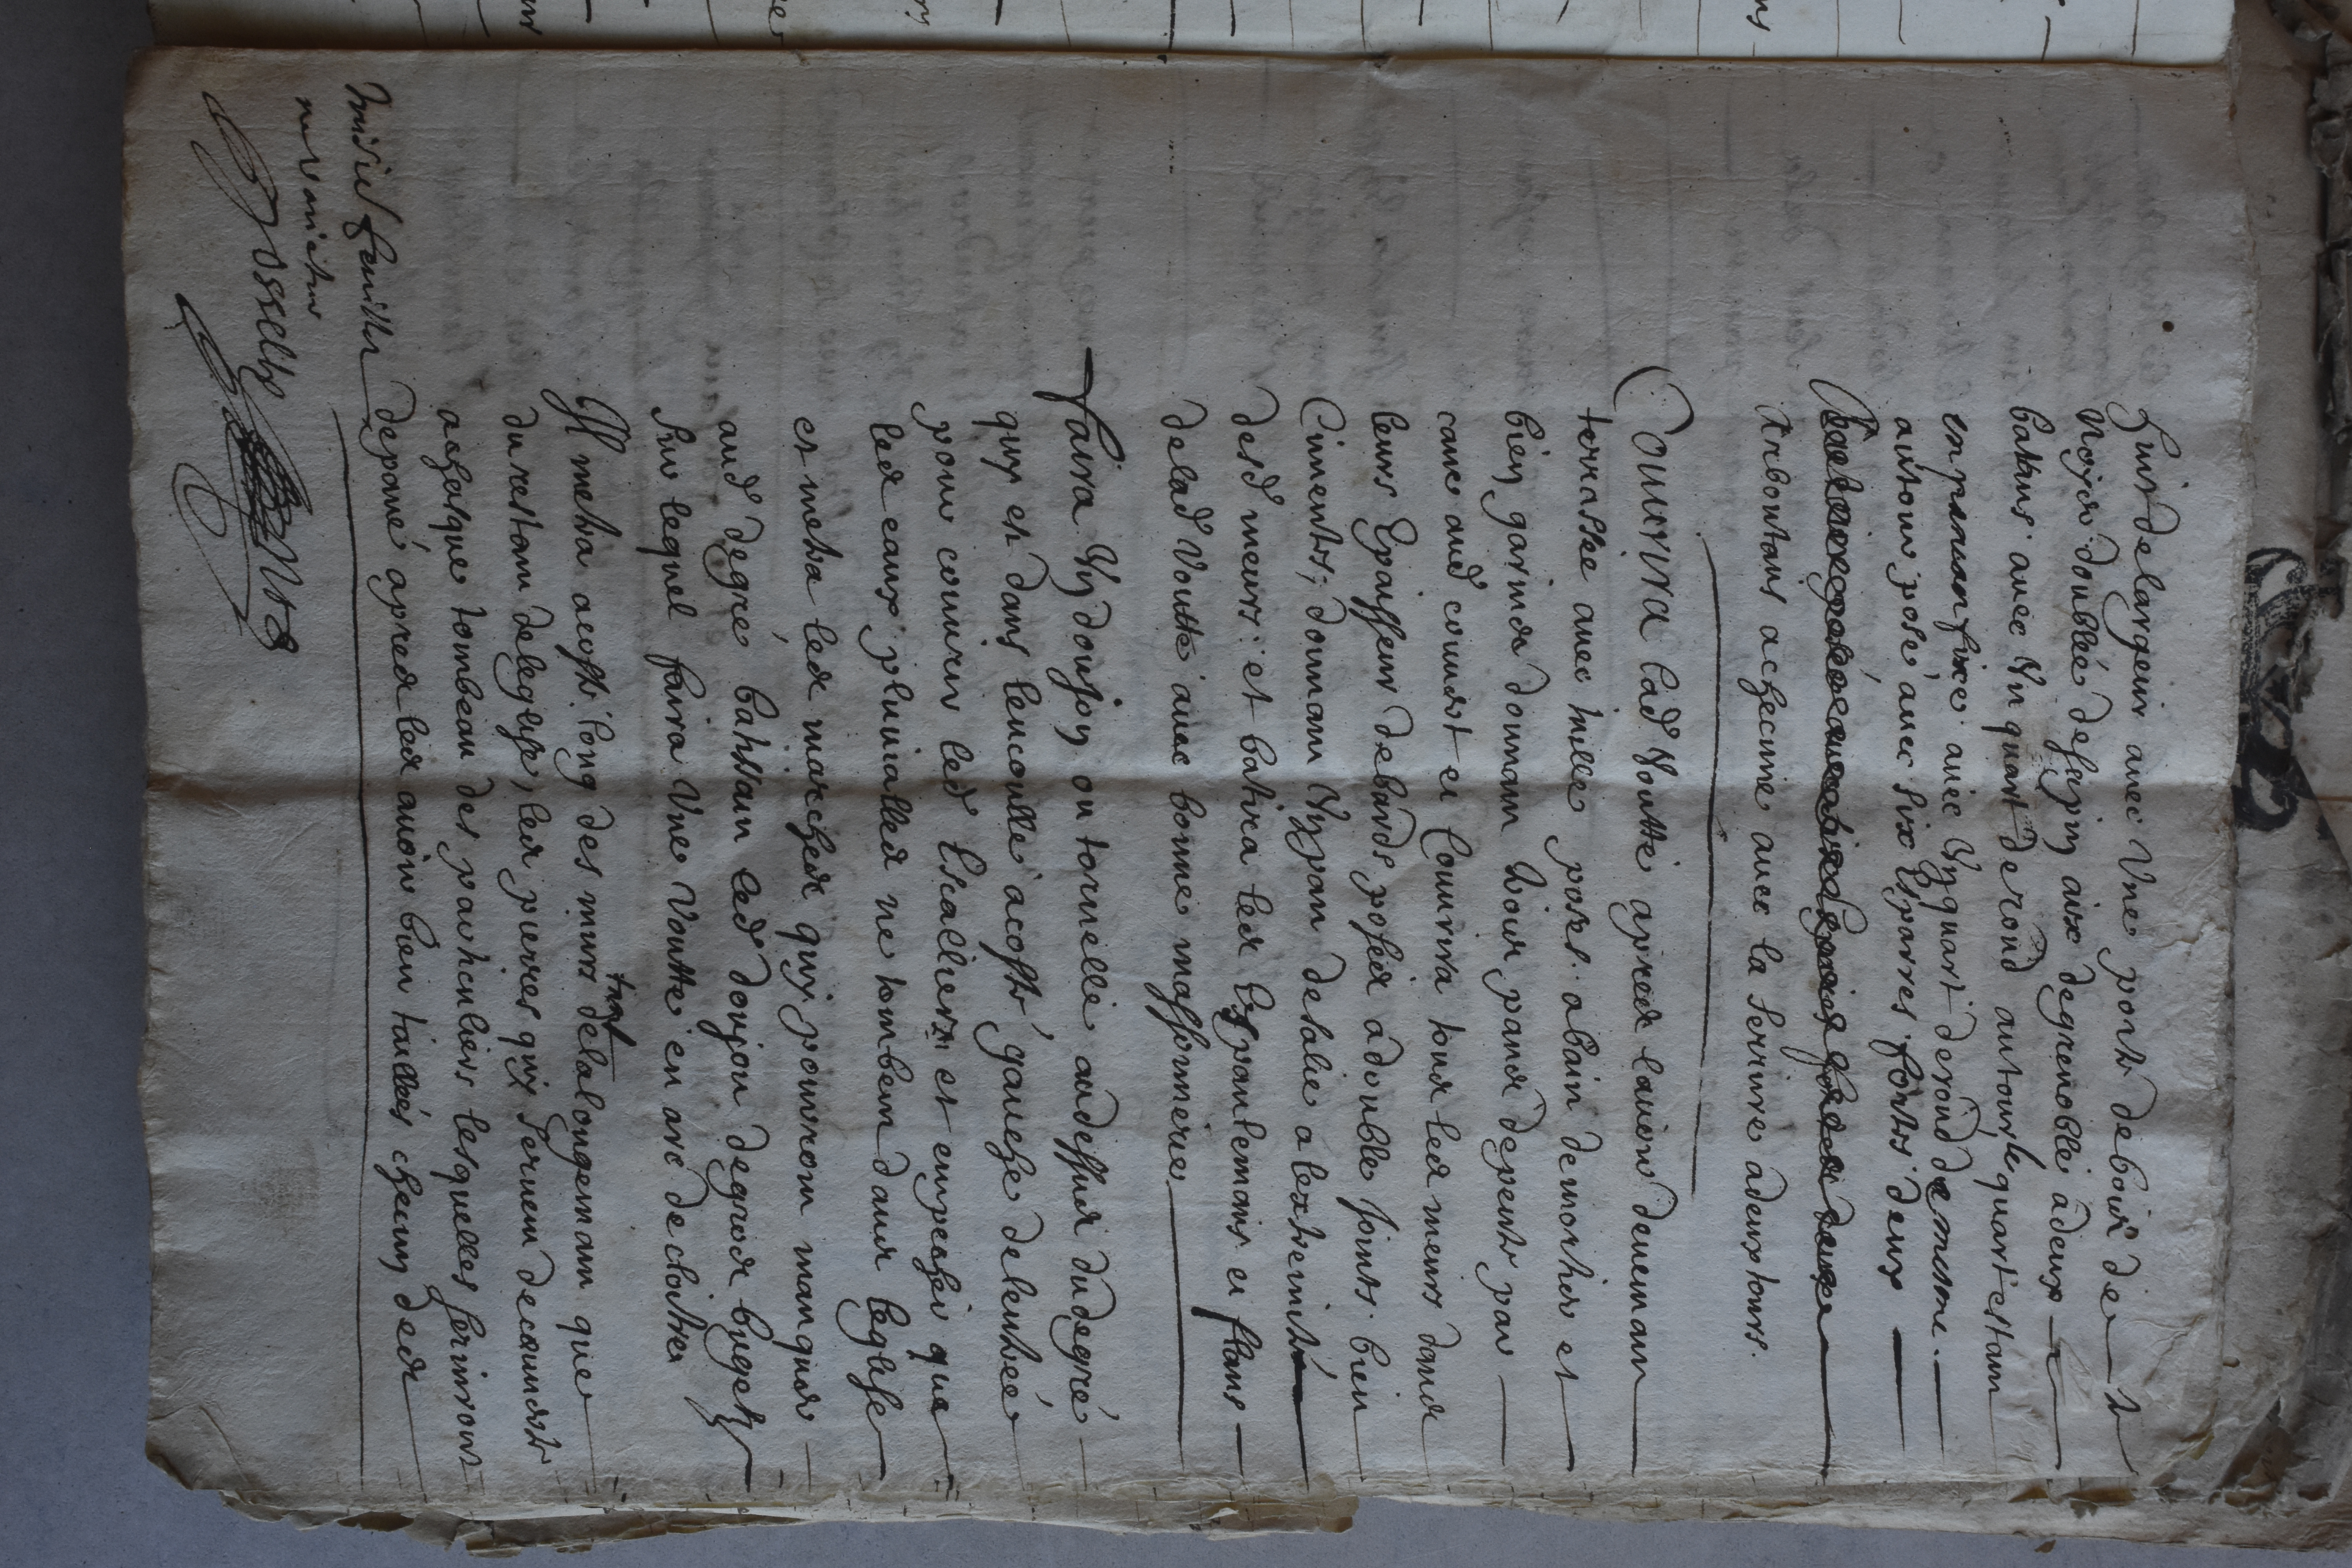 huit de largeur avec Vne porte de bois de
Noyer doublée de sapin aix de grenoble a deux
batans avec Vn quart de rond autour le quart estant
en parauan fixe avec Vn quart de rond de mesme.
autour posé avec six Esparres fortes deux
Arboutans a checune avec la serrure a deux tours.
Couurira lad Voutte apres lauoir deuenant
terrassée avec tuille posés a bain de mortier et
bien garnies donnant trois pans de pente par
cane aud couuert et Couurira tous les meurs dans
leurs Epaisseur de bards posés a double joints bien
Cimentés, donnant Vn pan de salie a lextremité
desd meurs et batira les Espaulemans et flans
de lad Voutte avec bonne massonnerie
Faira Vn donjon ou tournelle au dessus du degré
quy est dans lencoulle a costé gauche de lentrée
pour couurir led Escallier et empecher que
les eaux pluuialles ne tombent dans leglise
et metra les marches quy pourront manquer
aud degré batissant led donjon de gros bugets
sur lequel faira Vne Voutte en arc de cloitre
Il metra a costé long des murs tant de la longemant que
du restant de leglise, les pierres quy seruent de couuerte
a chasque tombeau des particuliers lesquelles seruiront
de paué apres les auoir bien taillées checun des
troisie feuille
ne varietur
Josselly